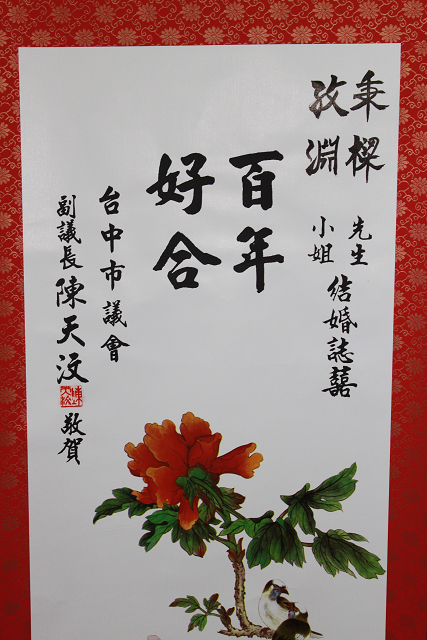 秉樑 先生
孜淵 小姐
結婚誌囍
百年
好合
台中市議會
副議長陳天汶 敬賀